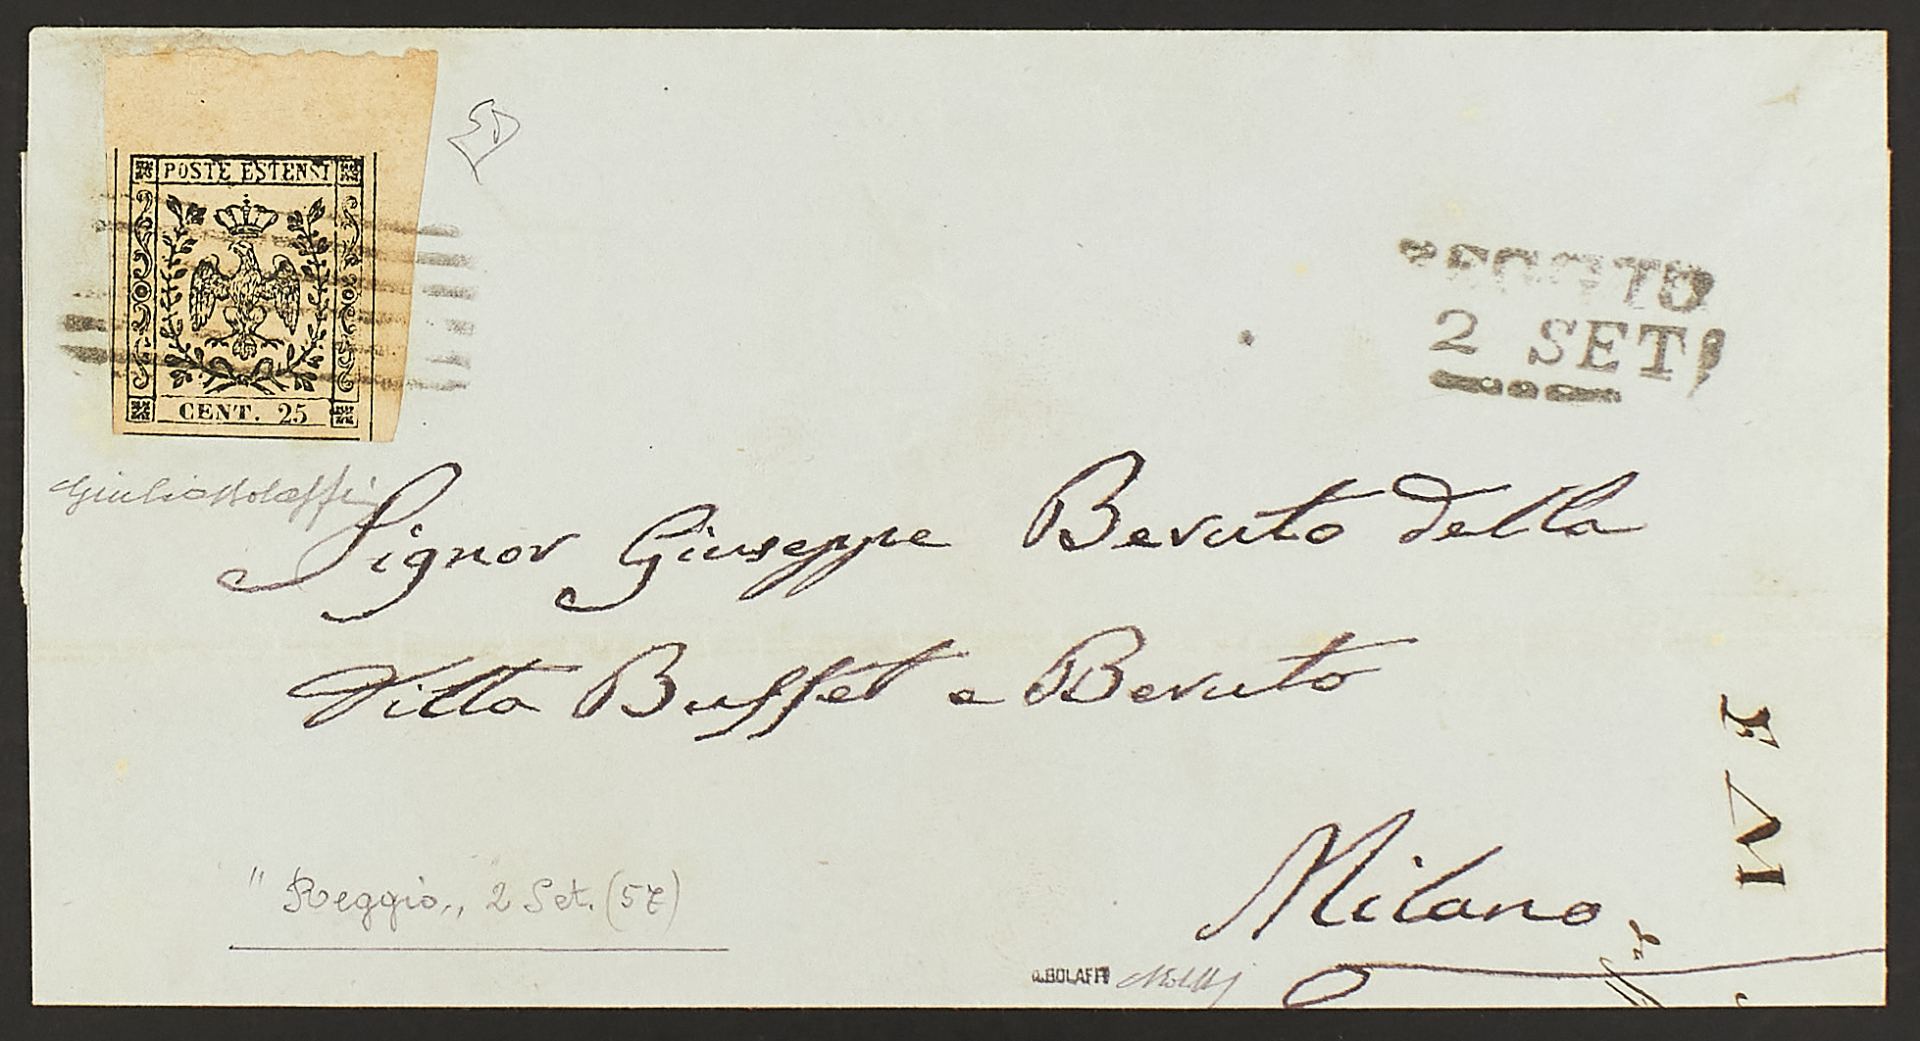 POSTE ESTENSI
CENT. 25
REGGIO
2 SET.
Giulio Bolaffi
Signor Giuseppe Beruto della
Ditta Buffet e Beruto
Milano
" Reggio,, 2 Set. (57)
A.BOLAFFI